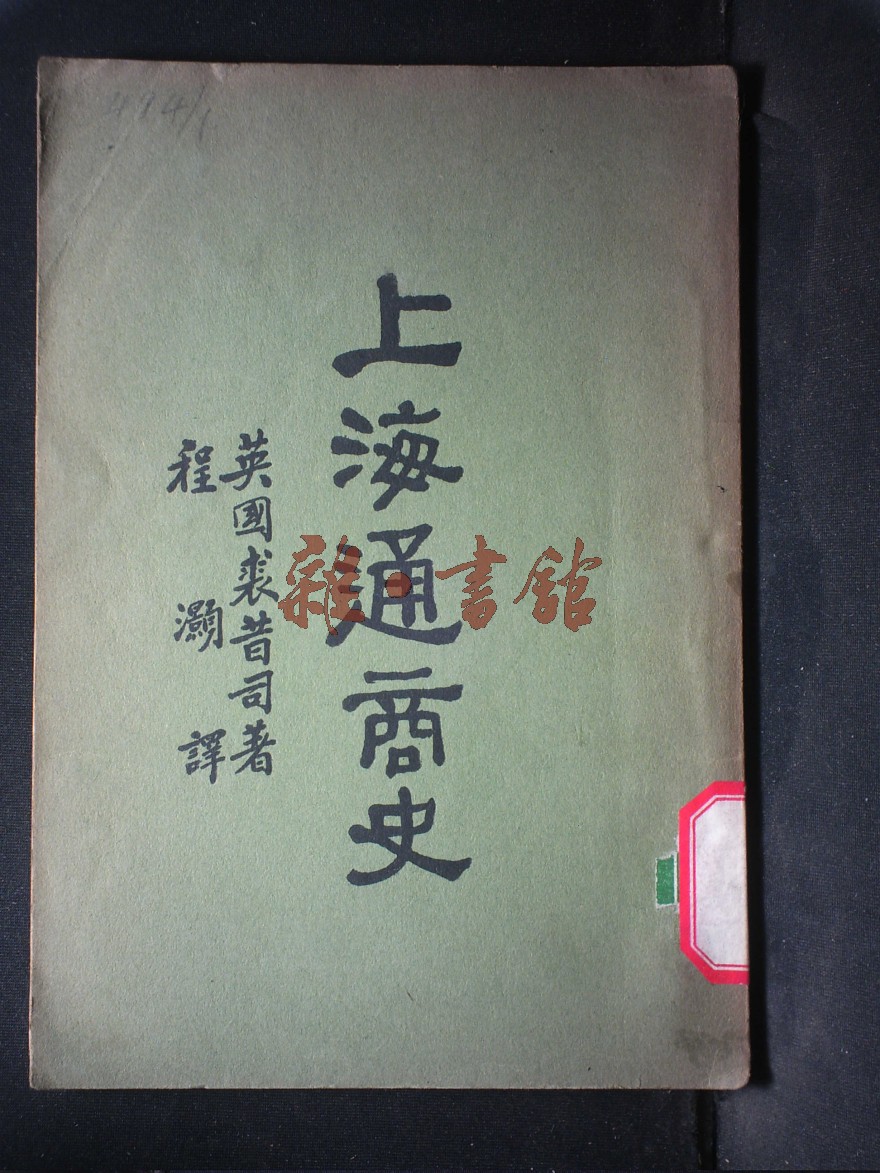 494/1
上海通商史
英國裘昔司著
程灝譯
雜·書館